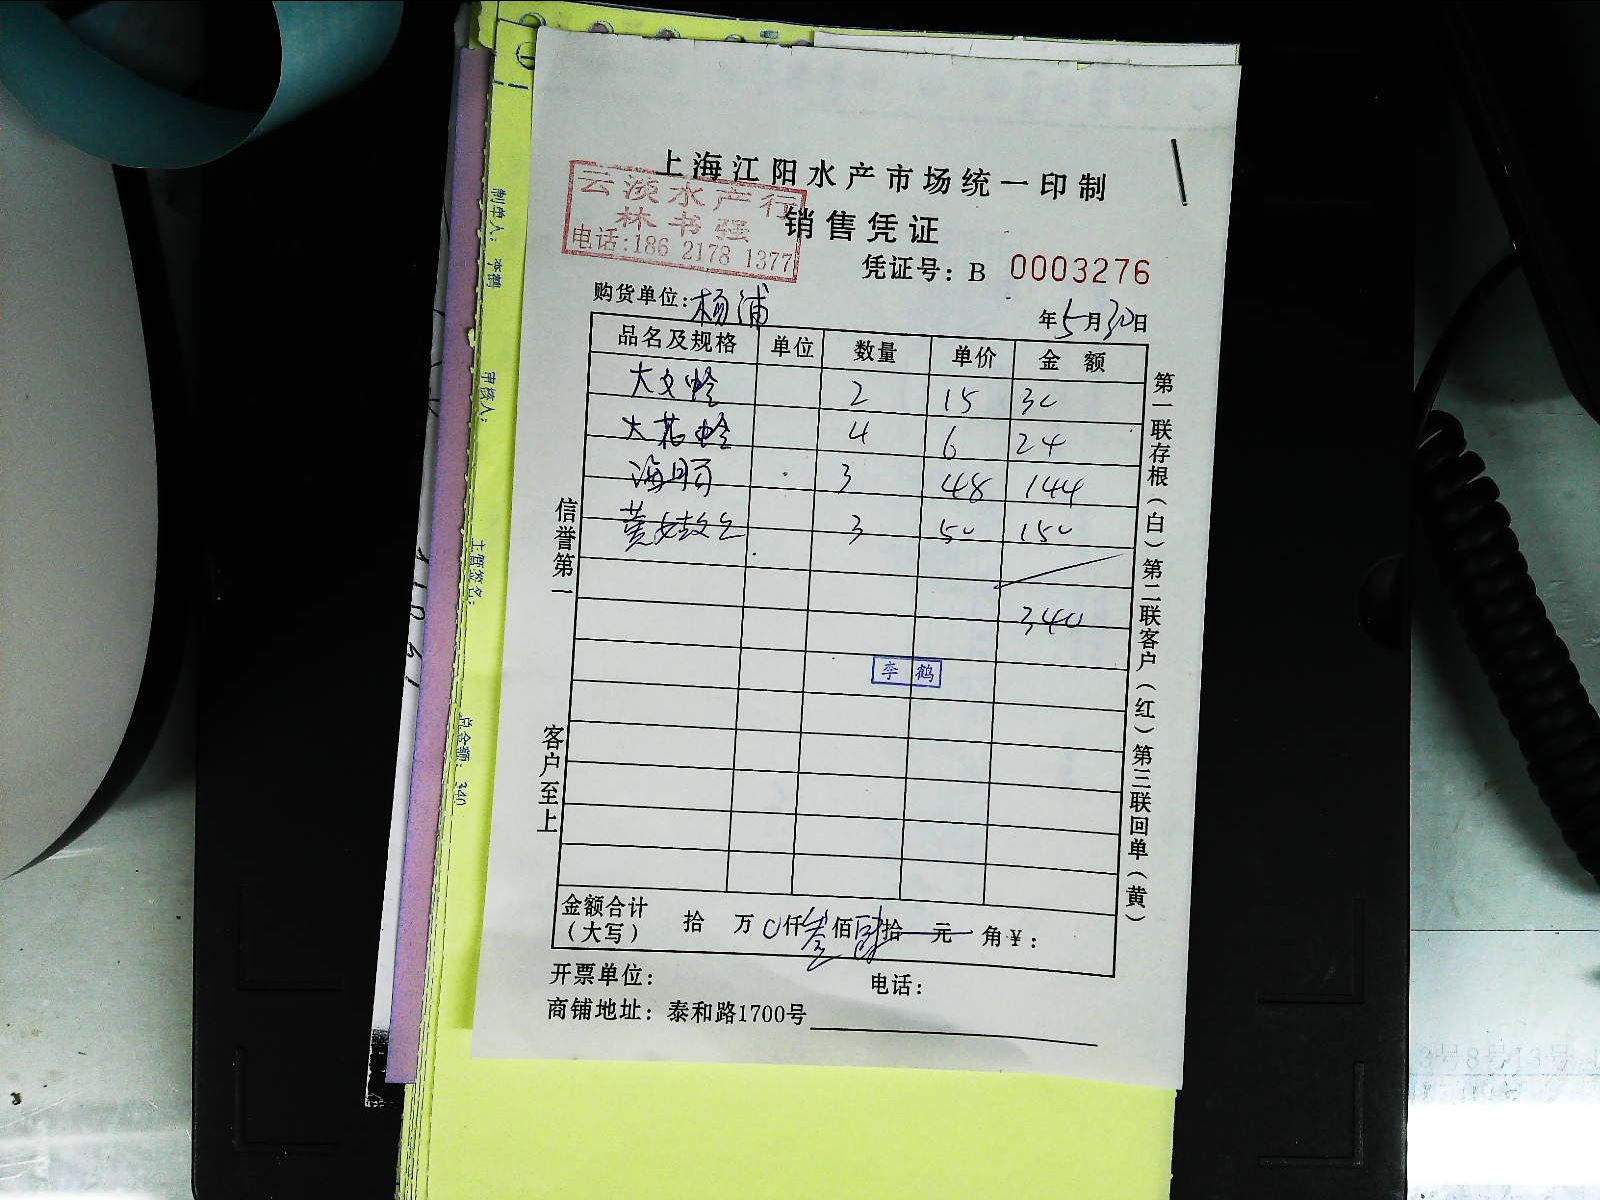 上海江阳水产市场统一印制
云淡水产行
林书强
电话:186 2178 1377
销售凭证
凭证号: B 0003276
购货单位:杨浦
年5月30日
品名及规格 单位 数量 单价 金额
大文蛤 2 15 30
大花蛤 4 6 24
海 3 48 144
黄 3 50 150
340
李鹤
信誉第一
客户至上
第一联存根(白)第二联客户(红)第三联回单(黄)
金额合计(大写) 拾 万 0仟叁佰肆拾 元 角 ¥:
开票单位: 电话:
商铺地址: 泰和路1700号
制单人: 李鹤
审核人:
主管签名:
总金额: 340